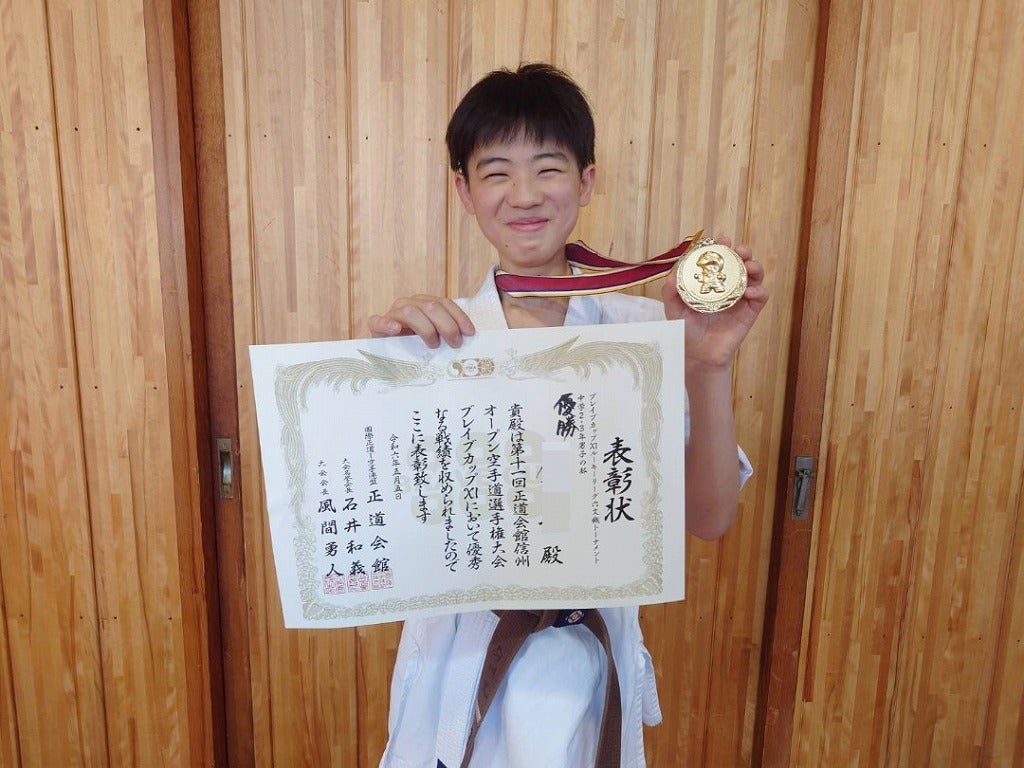 表彰状
ブレイブカップXIルーキーリーグ六文銭トーナメント
中学2・3年男子の部
優勝
殿
貴殿は第十一回正道会館信州
オープン空手道選手権大会
ブレイブカップXIにおいて優秀
なる戦績を収められましたので
ここに表彰致します
令和六年五月五日
正道会館
大会名誉会長 石井和義
大会会長 風間勇人